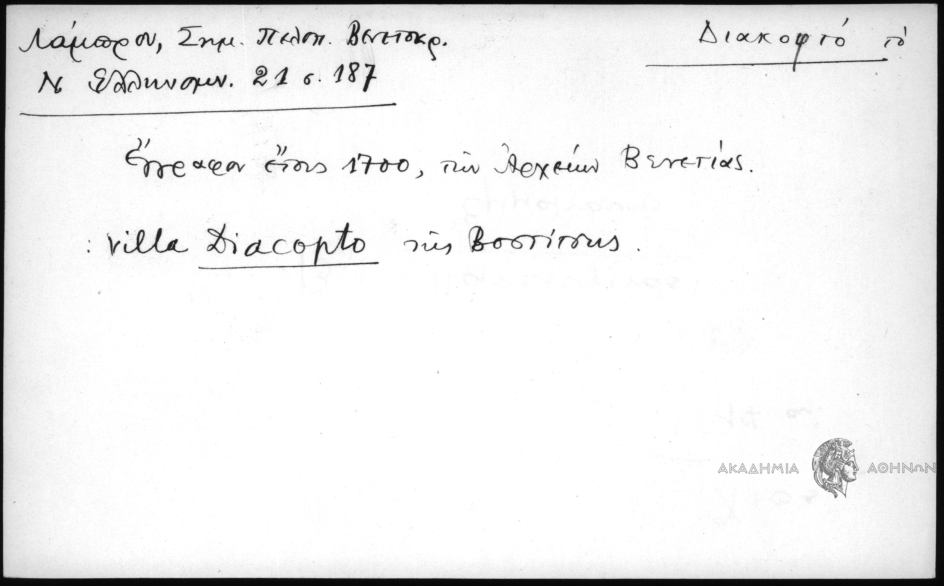 Λάμπρου, Σημ. Πελοπ. Βενετοκρ.
Διακοφτό τὸ
Ν. Ἑλληνομν. 21 σ. 187
Ἔγγραφον ἔτους 1700, τῶν Ἀρχείων Βενετίας.
: villa Diacopto τῆς Βοστίτσης.
ΑΚΑΔΗΜΙΑ ΑΘΗΝΩΝ